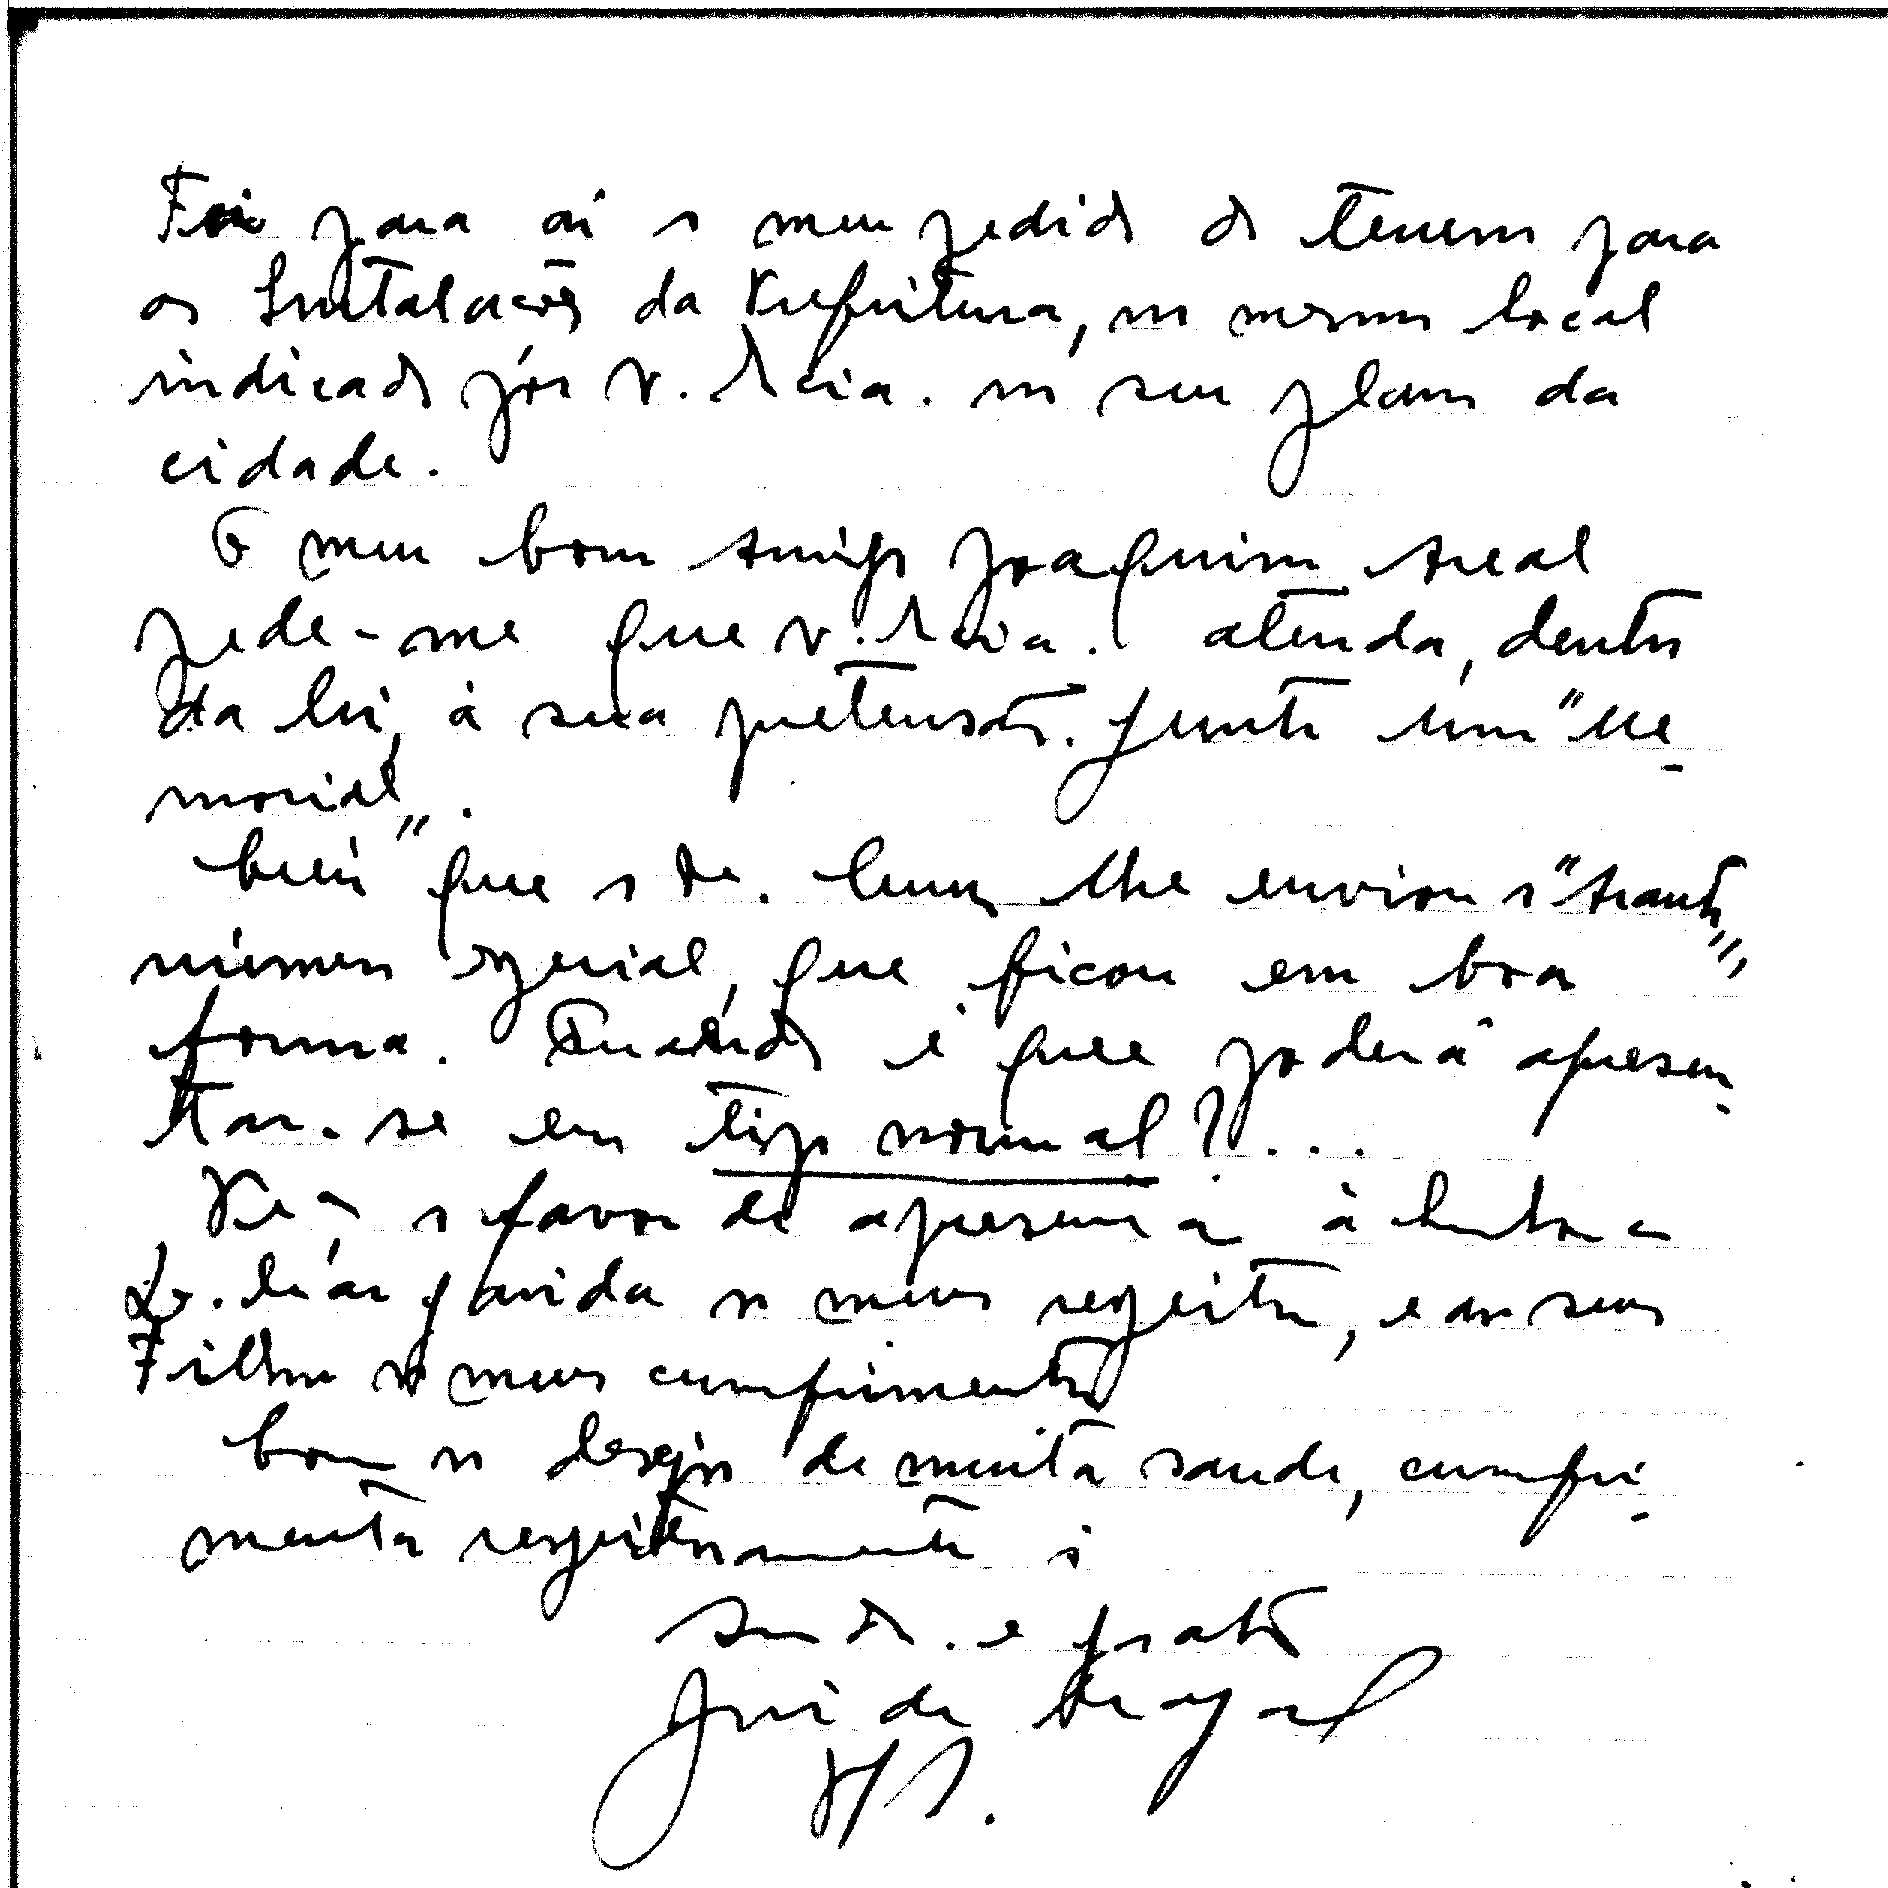 Foi para aí o meu pedido de terreno para
as Instalacões da Prefeitura, no mesmo local
indicado por V. Excia. no seu plano da
cidade.
O meu bom amigo Joaquim Areal
pede-me que V. Excia. atenda, dentro
da lei, à sua pretensão. Junto um "Me-
morial".
Creio que o Dr. Cunha lhe enviou o "Arauto"
número especial, que ficou em boa
forma. Quando é que poderá apresen-
tar-se em tipo normal?...
Peço, o favor de apresentar à
os meus respeitos, e aos seus
Filhos os meus cumprimentos
Com os desejos de muita saude, cumpri-
menta respeitosamente o
e grato
José de